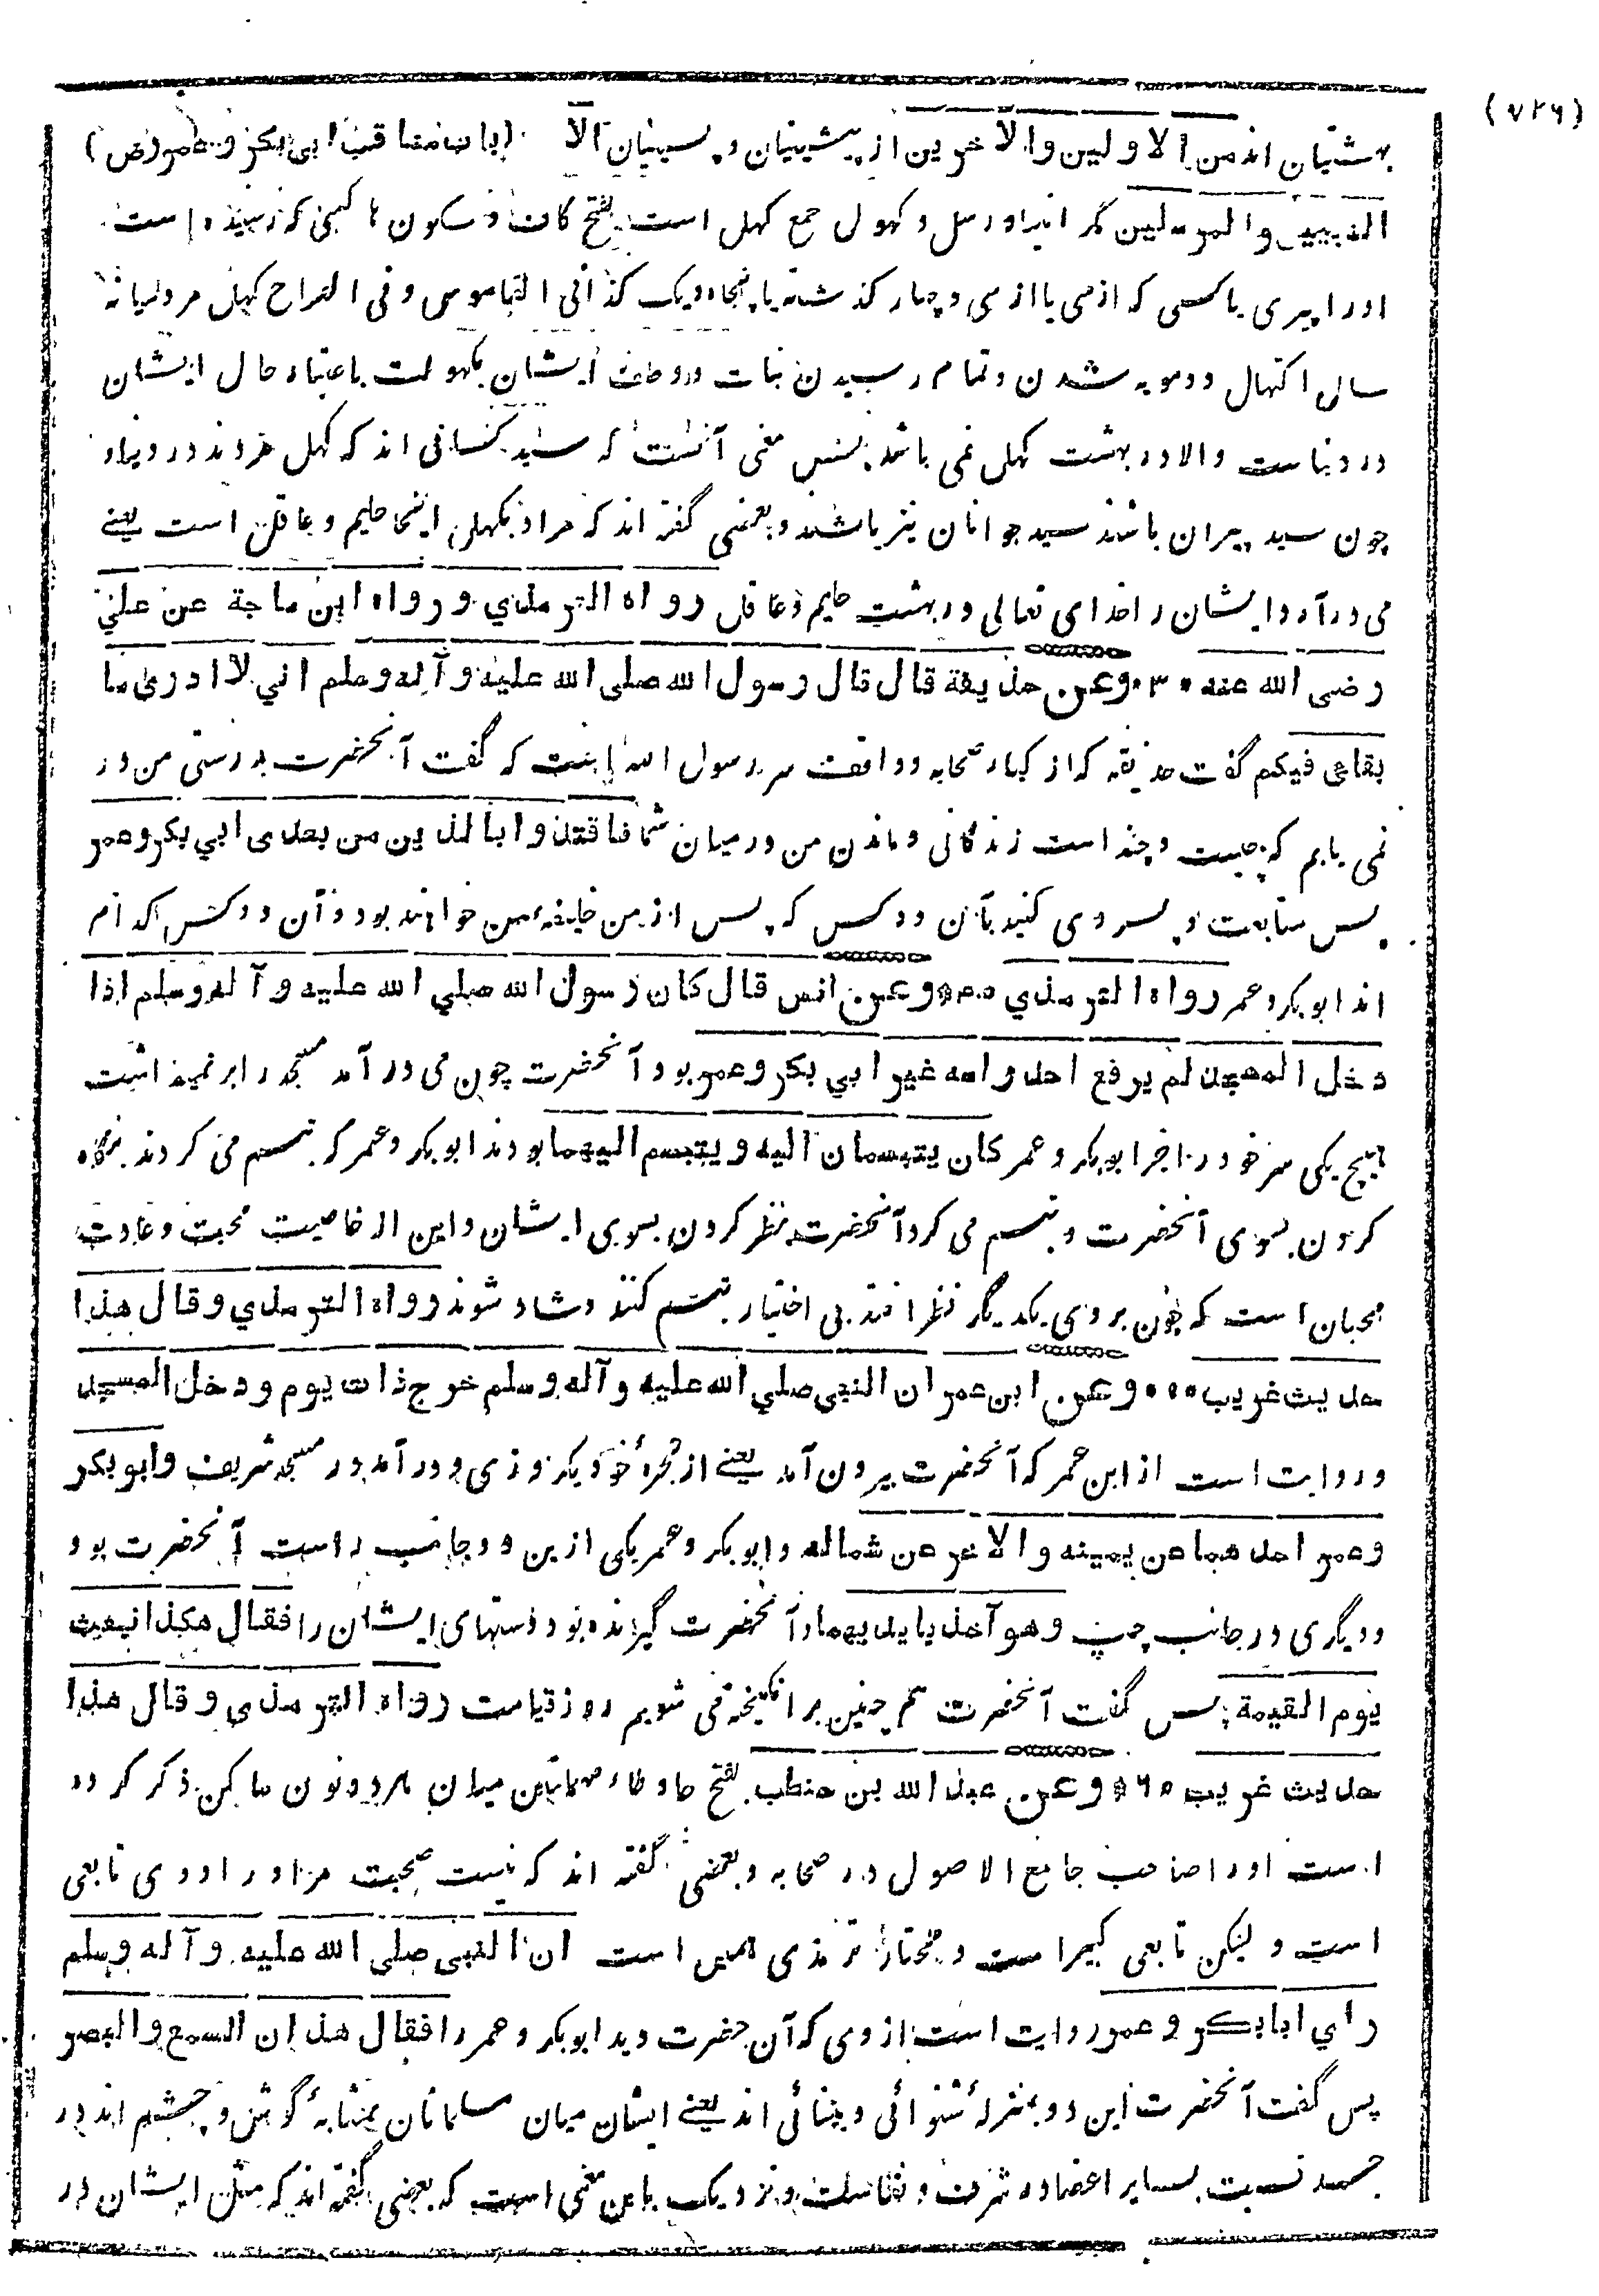 (۷۲۶)
بهشتیان اند من الاولین والآخرین از پیشینیان و پسینیان الا (باب مناقب ابی بکر و عمر رض)
النبیین والمرسلین مگر انبیا و رسل و کهول جمع کهل است بفتح کاف و سکون ها کسی که رسیده است
اورا پیری یا کسی که از سی یا از سی و چهار گذشته یا پنجاه و یک کذا فی القاموس و فی الصراح کهل مرد میانه
سالی اکتهال دومویه شدن و تمام رسیدن نبات و وصف ایشان بکهولت باعتبار حال ایشان
در دنیاست والا در بهشت کهل نمی باشد پس معنی آنست که سید کسانی اند که کهل مردند در دنیا و
چون سید پیران باشند سید جوانان نیز باشند و بعضی گفته اند که مراد بکهل اینجا حلیم و عاقل است یعنے
می درآرد ایشان را خدای تعالی در بهشت حلیم و عاقل رواه الترمذي ورواه ابن ماجة عن علي
رضی الله عنه وعن حذیفة قال قال رسول الله صلی الله علیه وآله وسلم اني لا ادری ما
بقاءی فیکم گفت حذیفه که از کبار صحابه و واقف سر رسول الله است که گفت آنحضرت بدرستی من در
نمی یابم که چیست و چند است زندگانی و ماندن من در میان شما فاقتدوا بالذین من بعدی ابي بکر وعمر
پس متابعت و پسروی کنید بآن دو کس که پس از من خلیفه من خواهند بود و آن دو کس کدام
اند ابو بکر و عمر رواه الترمذي وعن انس قال کان رسول الله صلي الله علیه وآله وسلم اذا
دخل المسجد لم یرفع احد رأسه غیر ابي بکر وعمر بود آنحضرت چون می در آمد مسجد را بر نمیداشت
هیچ یکی سر خود را جز ابو بکر و عمر کان یتبسمان الیه ویتبسم الیهما بودند ابو بکر و عمر که تبسم می کردند نگاه
کردن بسوی آنحضرت و تبسم می کرد آنحضرت نظر کردن بسوی ایشان و این از خاصیت محبت و عادت
محبان است که چون بر روی یکدیگر نظر افتد بی اختیار تبسم کنند و شاد شوند رواه الترمذي وقال هذا
حدیث غریب وعن ابن عمر ان النبی صلي الله علیه وآله وسلم خرج ذات یوم ودخل المسجد
و روایت است از ابن عمر که آنحضرت بیرون آمد یعنے از حجرهٔ خود یک روزی و در آمد در مسجد شریف وابو بکر
وعمر احدهما عن یمینه والآخر عن شماله و ابو بکر و عمر یکی ازین دو جانب راست آنحضرت بود
و دیگری در جانب چپ وهو آخذ بایدیهما و آنحضرت گیرنده بود دستهای ایشان را فقال هکذا نبعث
یوم القیمة پس گفت آنحضرت هم چنین بر انگیخته می شویم روز قیامت رواه الترمذی وقال هذا
حدیث غریب وعن عبد الله بن حنطب بفتح حا و طاء مهملتین میان هر دو نون ساکن ذکر کرده
است اورا صاحب جامع الاصول در صحابه و بعضی گفته اند که نیست صحبت مر اورا و وی تابعی
است و لیکن تابعی کبیر است و مختار ترمذی همین است ان النبی صلی الله علیه وآله وسلم
رأي ابابکر وعمر روایت است از وی که آن حضرت دید ابو بکر و عمر را فقال هذان السمع والبصر
پس گفت آنحضرت این دو بمنزلهٔ شنوائی و بینائی اند یعنے ایشان میان مسلمانان بمثابهٔ گوش و چشم اند در
جسد نسبت بسایر اعضا در شرف و نفاست و نزدیک باین معنی است که بعضی گفته اند که مثل ایشان در